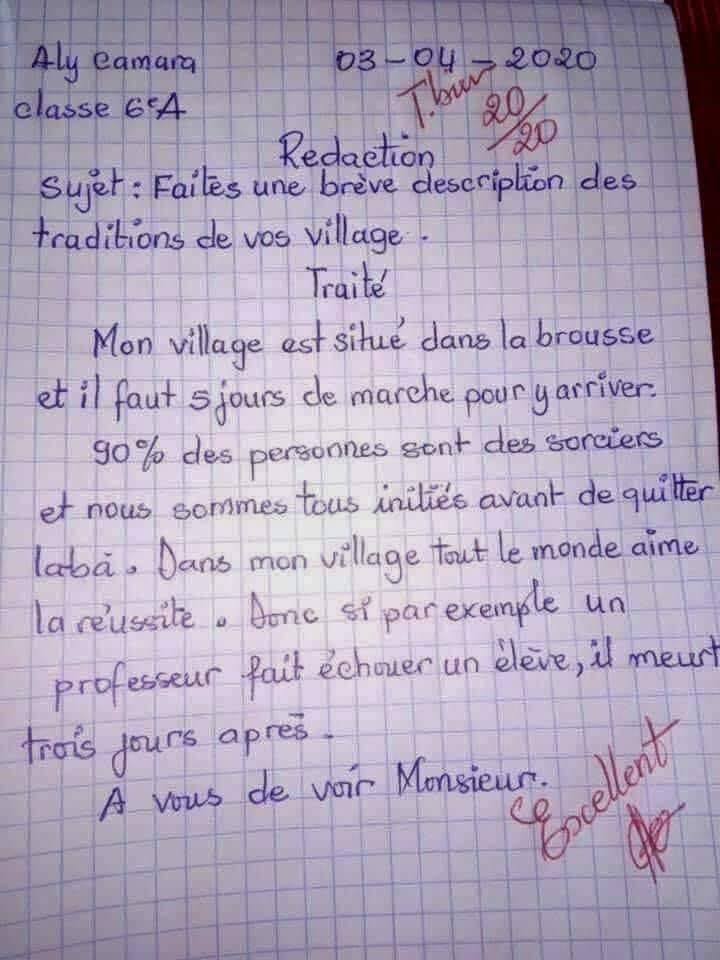 Aly Camara 03-04-2020
classe 6eA
T. bien 20/20
Redaction
Sujet: Faites une brève description des
traditions de vos village.
Traité
Mon village est situé dans la brousse
et il faut 5 jours de marche pour y arriver.
90% des personnes sont des sorciers
et nous sommes tous initiés avant de quitter
labà. Dans mon village tout le monde aime
la réussite. Donc si par exemple un
professeur fait échouer un élève, il meurt
trois jours apres.
A vous de voir Monsieur.
Excellent